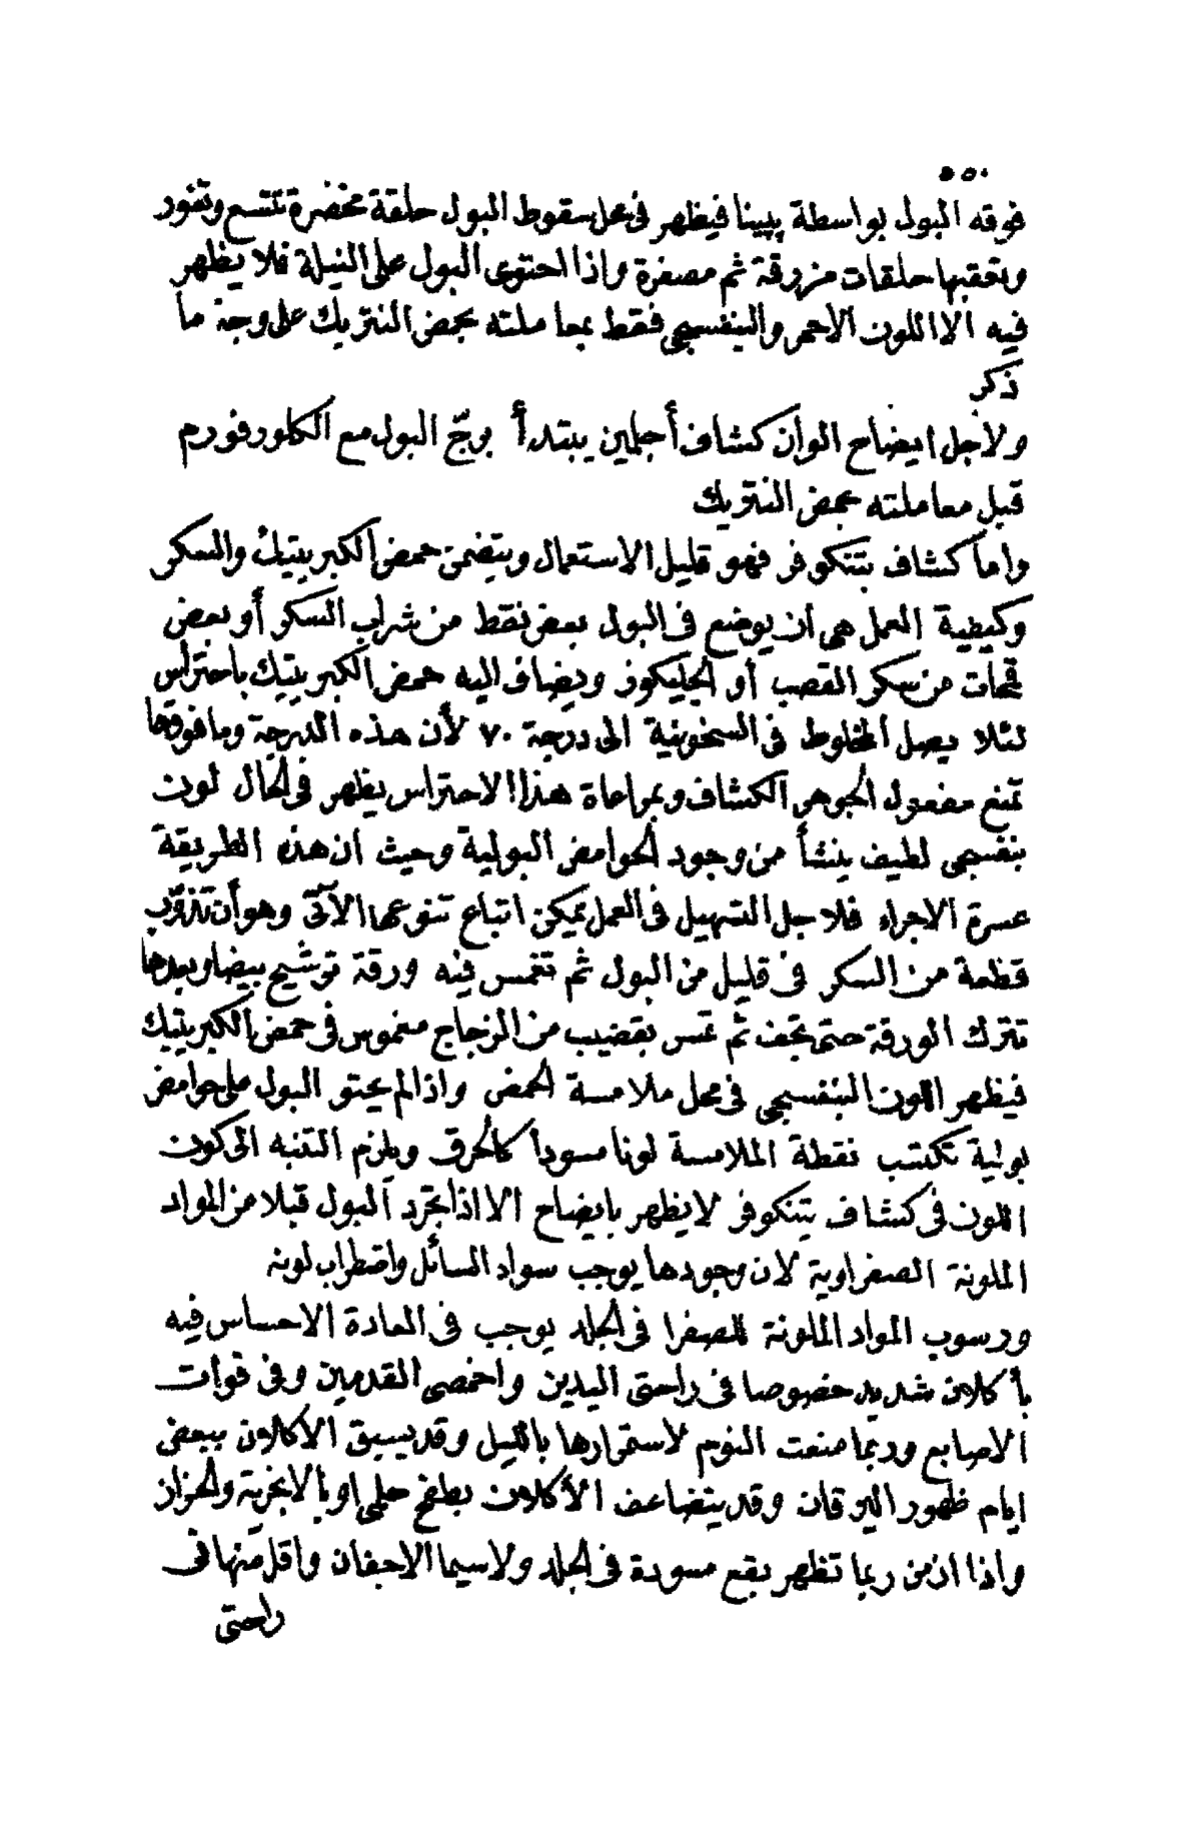 ٥٥٠
فوقه البول بواسطة پيپينا فيظهر فى محل سقوط البول حلقة مخضرة تتسع وتغور
وتعقبها حلقات مزرقة ثم مصفرة واذا احتوى البول على النيلة فلا يظهر
فيه الا اللون الاحمر والبنفسجى فقط بمعاملته بحمض النتريك على وجه ما
ذكر
ولاجل ايضاح الوان كشاف أجملين يبتدأ برجّ البول مع الكلوروفورم
قبل معاملته بحمض النتريك
واما كشاف بتنكوفر فهو قليل الاستعمال ويتضمن حمض الكبريتيك والسكر
وكيفية العمل هى ان يوضع فى البول بعض نقط من شراب السكر أو بعض
قمحات من سكر القصب أو الجليكوز ويضاف اليه حمض الكبريتيك باحتراس
لئلا يصل المخلوط فى السخونية الى درجة ٧٠ لأن هذه الدرجة وما فوقها
تمنع مفعول الجوهر الكشاف وبمراعاة هذا الاحتراس يظهر فى الحال لون
بنفسجى لطيف ينشأ من وجود الحوامض البولية وحيث ان هذه الطريقة
عسرة الاجراء فلاجل التسهيل فى العمل يمكن اتباع تنوعها الآتى وهو أن تذوّب
قطعة من السكر فى قليل من البول ثم تغمس فيه ورقة توشيح بيضا وبعدها
تترك الورقة حتى تجف ثم تمس بقضيب من الزجاج مغموس فى حمض الكبريتيك
فيظهر اللون البنفسجى فى محل ملامسة الحمض واذا لم يحتو البول على حوامض
بولية تكتسب نقطة الملامسة لونا مسودا كالحرق ويلزم التنبه الى كون
اللون فى كشاف بتنكوفر لا يظهر بايضاح الا اذا تجرد البول قبلا من المواد
الملونة الصفراوية لان وجودها يوجب سواد السائل واضطراب لونه
ورسوب المواد الملونة للصفرا فى الجلد يوجب فى العادة الاحساس فيه
بأكلان شديد خصوصا فى راحتى اليدين واخمصى القدمين وفى فوات
الاصابع وربما منعت النوم لاستمرارها بالليل وقد يسبق الاكلان ببعض
ايام ظهور اليرقان وقد يتضاعف الأكلان بطفح حلمى او بالانجرية والحزاز
واذا ازمن ربما تظهر بقع مسودة فى الجلد ولاسيما الاجفان واقل منها فى
راحتى